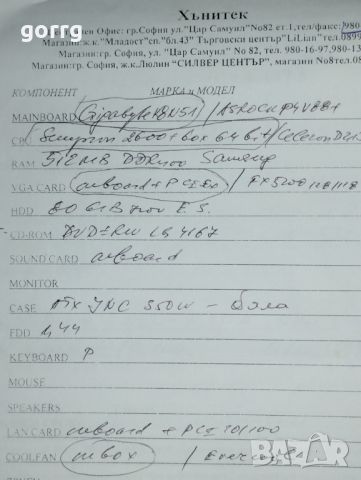 gorrg
Хънитек
Офис: гр.София ул."Цар Самуил" No82 ет.1,тел/факс: 980
Магазин: ж.к."Младост"сп."бл.43" Търговски център"LiLian"тел.0899
Магазин:гр.София, ул. "Цар Самуил" No 82, тел. 980-16-97,980-13
Магазин:гр.София, ж.к.Люлин "СИЛВЕР ЦЕНТЪР", магазин No8тел.08
КОМПОНЕНТ МАРКА и МОДЕЛ
MAINBOARD Gigabyte K8N51 / ASROCK P4V88+
Sempron 2600+ box 64 bit / Celeron D
RAM 512 MB DDR400 Samsung
VGA CARD onboard + PCI Ex / FX5200 128/128
HDD 80 GB
CD-ROM DVD±RW LG 4167
SOUND CARD onboard
MONITOR
CASE ATX JNC 350W - бяла
FDD 1,44
KEYBOARD P
MOUSE
SPEAKERS
LAN CARD onboard + PCI 10/100
COOLFAN inbox /
bazar